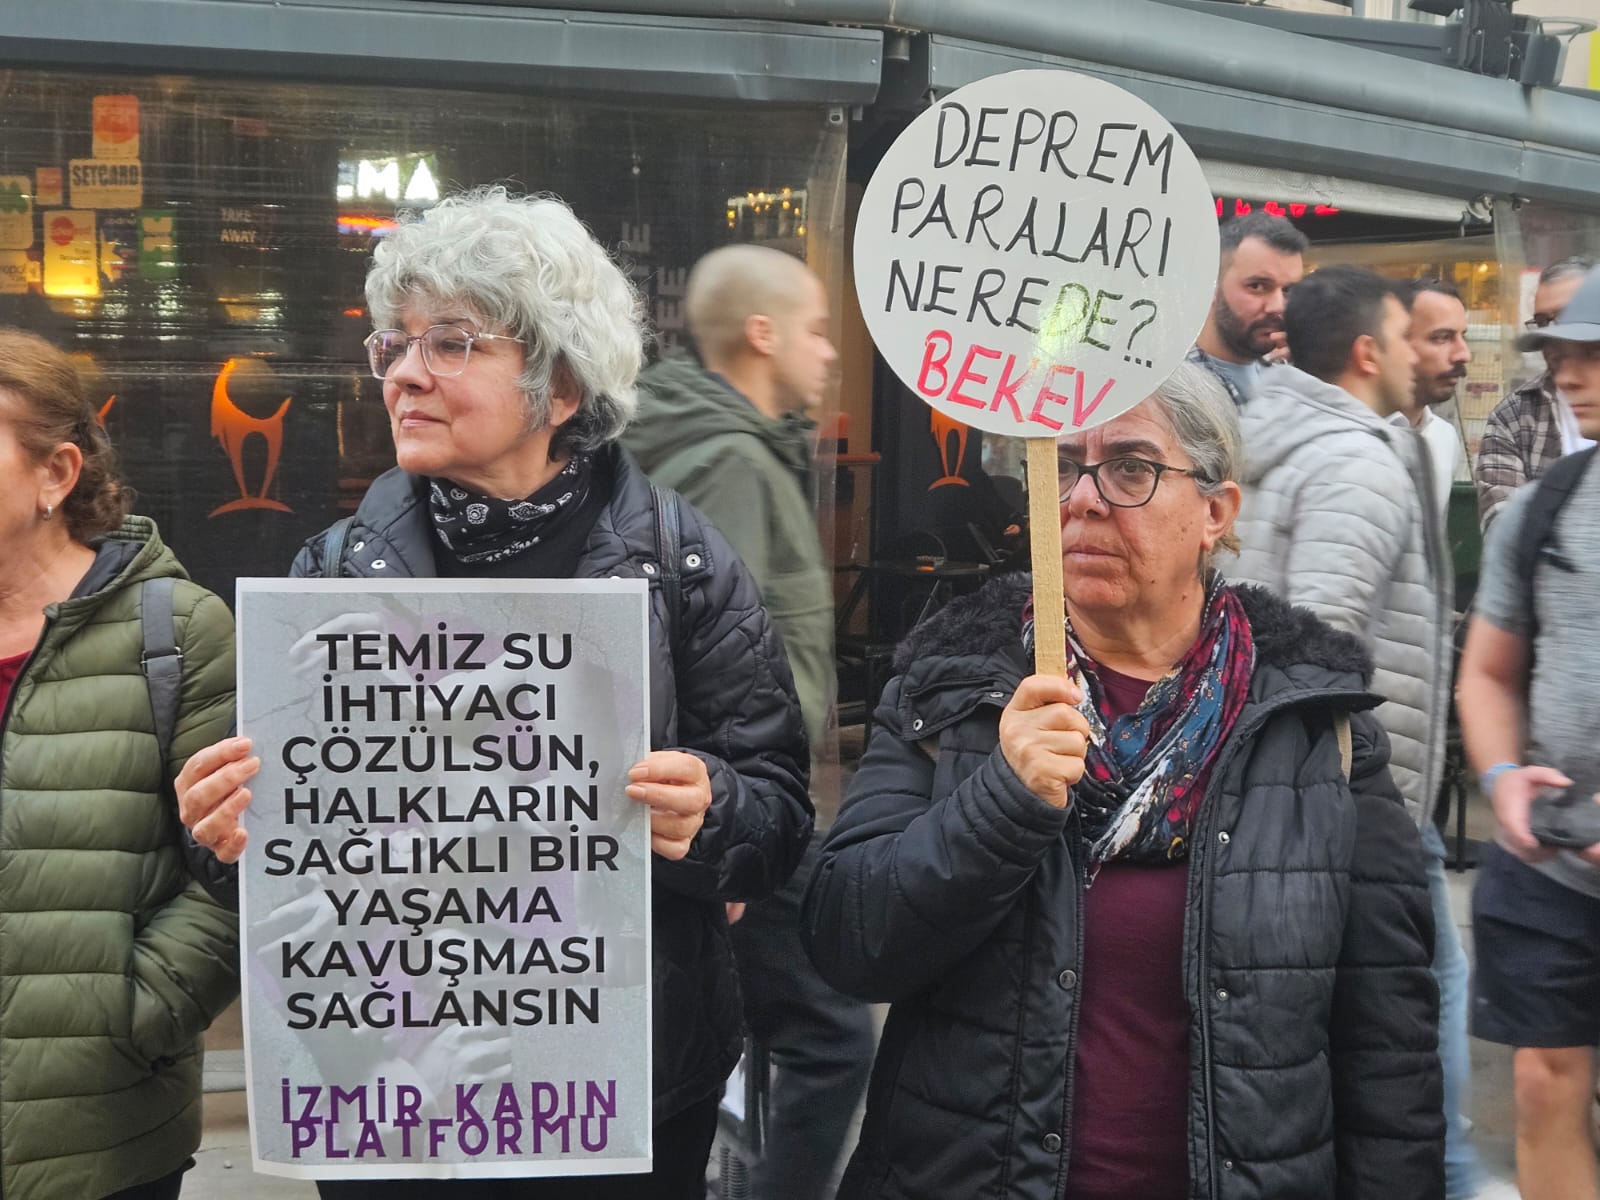 SETCARD
TAKE
AWAY
MA
DEPREM
PARALARI
NEREDE?...
BEKEV
TEMİZ SU
İHTİYACI
ÇÖZÜLSÜN,
HALKLARIN
SAĞLIKLI BİR
YAŞAMA
KAVUŞMASI
SAĞLANSIN
İZMİR KADIN
PLATFORMU